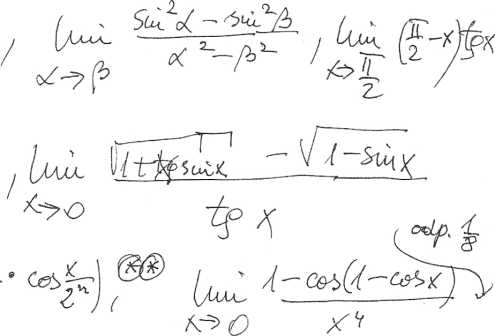 , lim_{α→β} (sin²α - sin²β)/(α² - β²) , lim_{x→π/2} (π/2 - x) tg x
, lim_{x→0} (√(1 + sin x) - √(1 - sin x))/(tg x)
odp. 1/8
· cos x/2ⁿ), (**) lim_{x→0} (1 - cos(1 - cos x))/x⁴